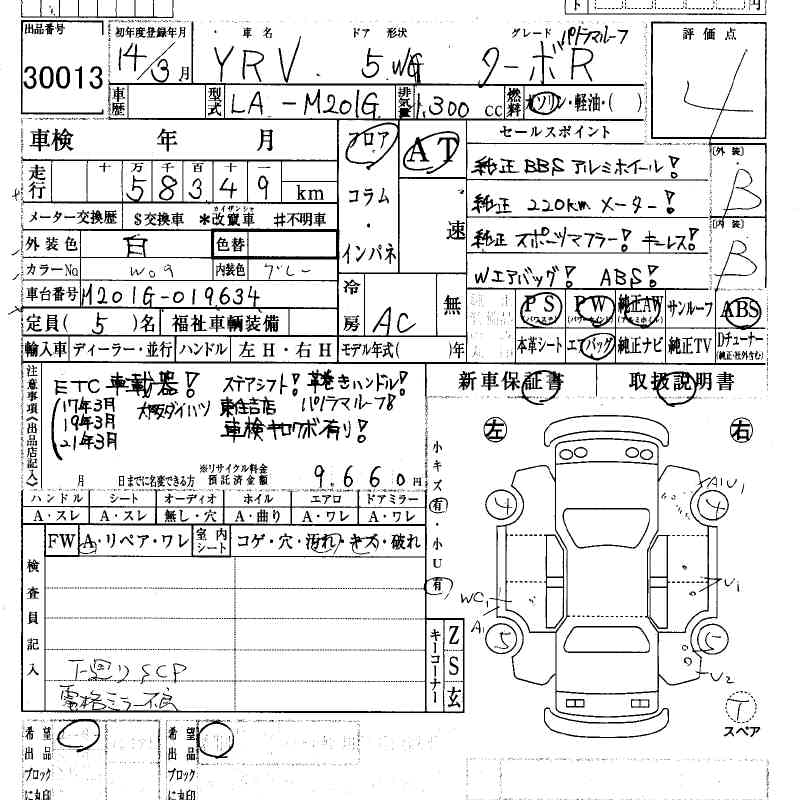 出品番号 初年度登録年月 車名 ドア 形状 グレード パノラマルーフ 評価点
30013 14/3月 YRV 5 WG ターボR 4
車歴 型式 LA-M201G 排気量 1,300 cc 燃料 ガソリン・軽油・( )
車検 年 月 フロア AT セールスポイント
走行 十 万 千 百 十 一 純正 BBS アルミホイール! [外装] B
5 8 3 4 9 km コラム 純正 220km メーター!
メーター交換歴 $交換車 *改竄車 カイザンシャ #不明車 ・ 速 純正 スポーツマフラー! キーレス! [内装] B
外装色 白 色替 インパネ Wエアバッグ! ABS!
カラーNo W09 内装色 グレー
車台番号 M201G-019634 冷房 AC 無 PS PW 純正AW サンルーフ ABS
定員( 5 )名 福祉車輌装備 本革シート エアバッグ 純正ナビ 純正TV Dチューナー
輸入車 ディーラー・並行 ハンドル 左H・右H モデル年式( )年 (純正・社外含む)
注意事項(出品店記入) ETC車載器! ステアシフト! 革巻きハンドル! 新車保証書 取扱説明書
17年3月 大阪ダイハツ 東住吉店 パノラマルーフ!
19年3月 車検キロクボ有り! 左 右
21年3月
月 日までに名変できる方 ※リサイクル料金預託済金額 9,660円 小キズ(有)・小U(有)
ハンドル シート オーディオ ホイル エアロ ドアミラー A1U1
A・スレ A・スレ 無し・穴 A・曲り A・ワレ A・ワレ 4 4
FW A・リペア・ワレ 室内シート コゲ・穴・汚れ・キズ・破れ
検査員記入 U1
WC1
A1 5 5
キーコーナー Z S 玄
下廻りSCP U2
電格ミラー不良 T
スペア
希望出品ブロックに丸印 希望出品ブロックに丸印